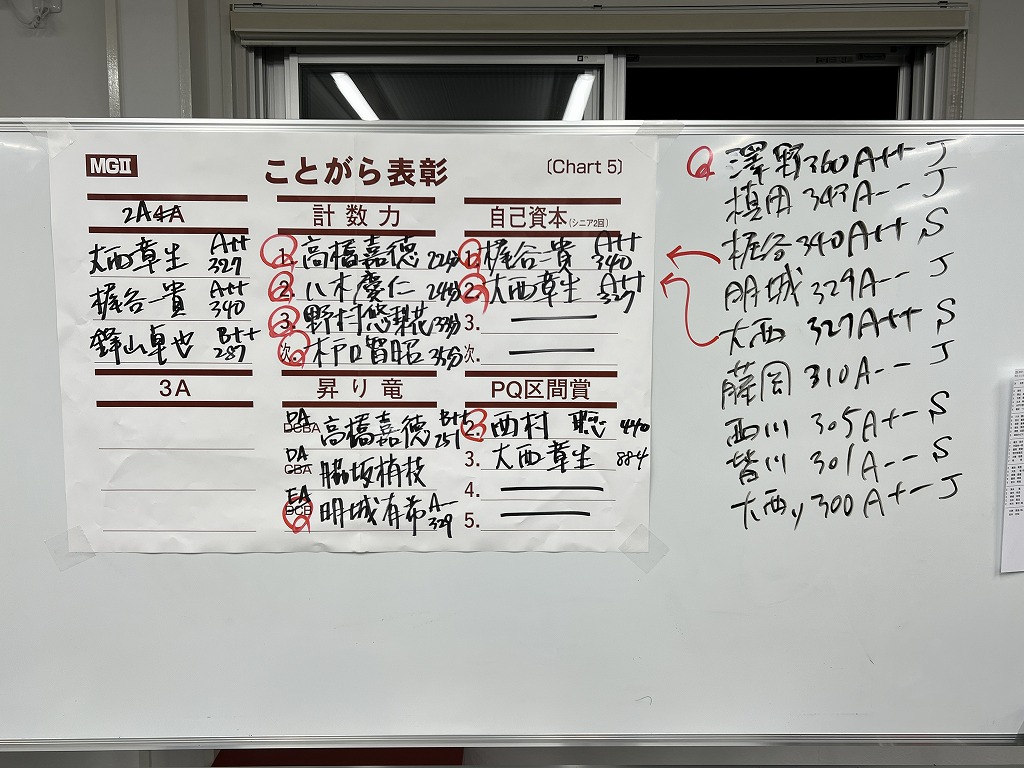 MGⅡ
ことがら表彰
〔Chart 5〕
2A4A
大西章生 A++ 327
梶谷一貴 A++ 340
鋒山卓也 B++ 287
3A
計数力
1. 高橋嘉徳 22分
2. 八木慶仁 24分
3. 野村悠梨花 33分
次. 木戸口智昭 35分
昇り竜
DA
DCBA 高橋嘉徳 B++ 251
DA
CBA 脇坂梢枝
EA
DCB 明城有希 A-- 329
自己資本(シニア2回)
1. 梶谷一貴 A++ 340
2. 大西章生 A++ 327
3.
次.
PQ区間賞
2. 西村 聡 440
3. 大西章生 884
4.
5.
澤野 360 A++ J
槙田 343 A-- J
梶谷 340 A++ S
明城 329 A-- J
大西 327 A++ S
藤岡 310 A-- J
西川 305 A+- S
皆川 301 A-- S
大西y 300 A+- J